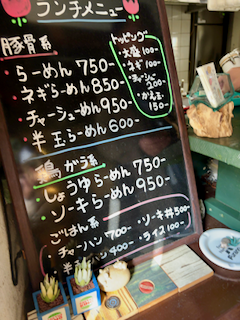 ランチメニュー
豚骨系
・らーめん 750-
・ネギらーめん 850-
・チャーシューめん 950-
・半玉らーめん 600-
トッピング
・大盛 100-
・ネギ 100-
・チャーシュー 200-
・かえ玉 150-
鶏がら系
・しょうゆらーめん 750-
・ソーキらーめん 950-
ごはん系
・チャーハン 700-
・半チャーハン 400-
・ソーキ丼 500-
・ライス 100-